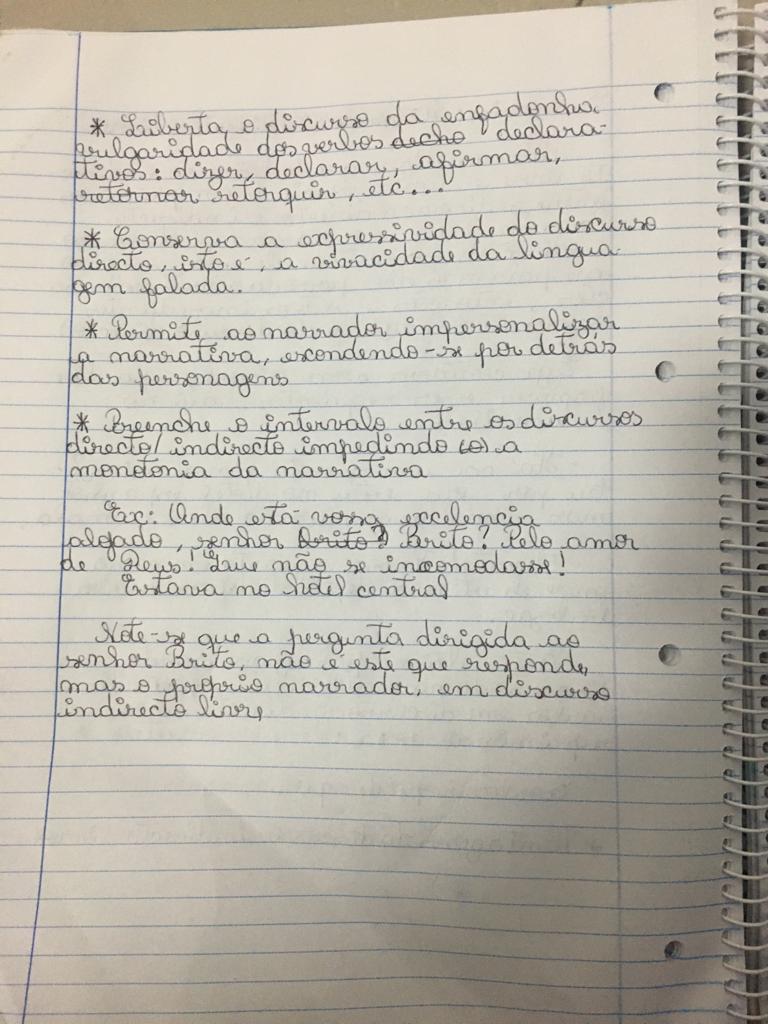 * Liberta o discurso da enfadonha
vulgaridade dos verbos decho declara-
tivos: dizer, declarar, afirmar,
retornar retorquir, etc...
* Conserva a expressividade do discurso
directo, isto é, a vivacidade da lingua-
gem falada.
* Permite ao narrador impersonalizar
a narrativa, escondendo-se por detrás
das personagens
* Preenche o intervalo entre os discursos
directo/indirecto impedindo (o) a
monotonia da narrativa
Ex: Onde está vossa excelencia
algado, senhor Brito? Brito? Pelo amor
de Deus! Que não se incomodasse!
Estava no hotel central
Note-se que a pergunta dirigida ao
senhor Brito, não é este que responde,
mas o proprio narrador, em discurso
indirecto livre,